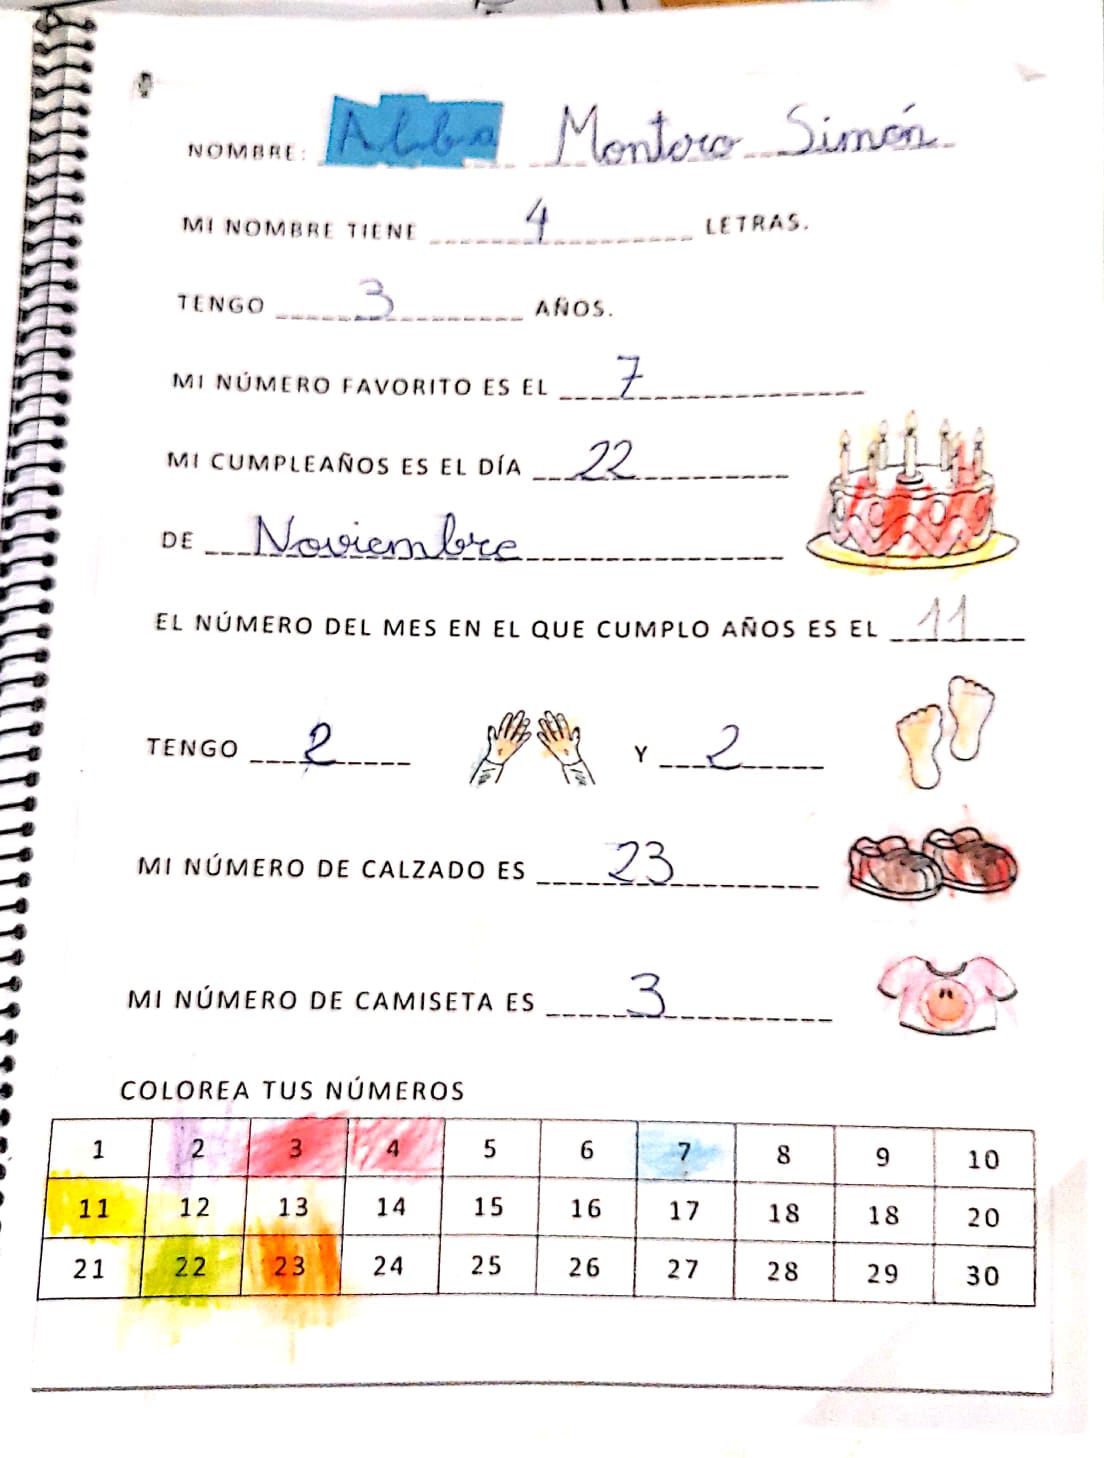 NOMBRE: Alba Montero Simón
MI NOMBRE TIENE 4 LETRAS.
TENGO 3 AÑOS.
MI NÚMERO FAVORITO ES EL 7
MI CUMPLEAÑOS ES EL DÍA 22
DE Noviembre
EL NÚMERO DEL MES EN EL QUE CUMPLO AÑOS ES EL 11
TENGO 2 Y 2
MI NÚMERO DE CALZADO ES 23
MI NÚMERO DE CAMISETA ES 3
COLOREA TUS NÚMEROS
1 2 3 4 5 6 7 8 9 10
11 12 13 14 15 16 17 18 18 20
21 22 23 24 25 26 27 28 29 30